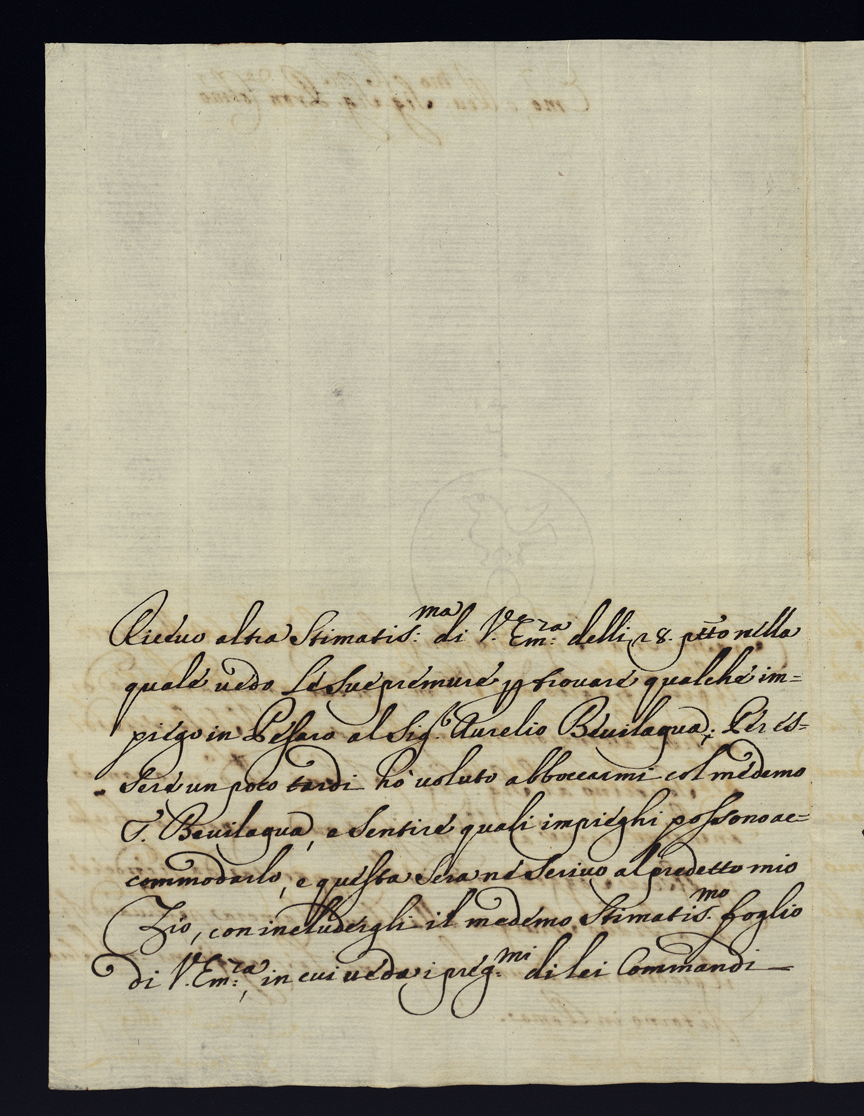 Riceuo altra Stimatis:ma di V. Em:ra delli 28. ptto nella
quale uedo le Sue premure p trouare qualche im=
piego in Pesaro al Sig.r Aurelio Beuilaqua; Per es=
sere un poco tardi ho uoluto abboccarmi col medemo
S. Beuilaqua, e Sentire quali impieghi possono ac=
commodarlo, e questa Sera ne Scriuo al predetto mio
Zio, con includergli il medemo Stimatis:mo foglio
di V. Em:ra, in cui ueda i preg.mi di lei Commandi